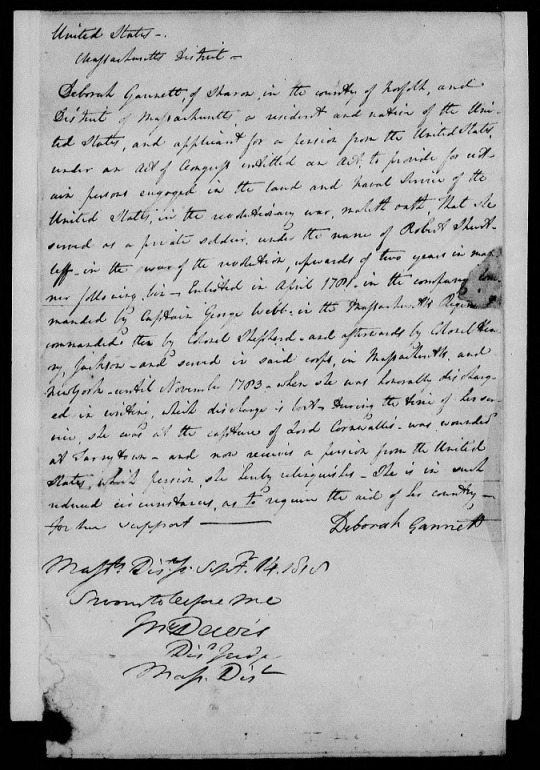 United States -.
Massachusetts District -
Deborah Gannett of Sharon, in the county of Norfolk, and
District of Massachusetts, a resident and native of the Uni-
ted States, and applicant for a pension from the United States,
under an Act of Congress entitled an Act, to provide for cert-
ain persons engaged in the land and Naval Service of the
United States, in the revolutionary war, maketh oath That she
served as a private soldier, under the name of Robert Shurt-
leff - in the war of the revolution, upwards of two years in man-
ner following, viz - Enlisted in April 1781 - in the company com-
manded by Captain George Webb - in the Massachusetts Regiment
commanded then by Colonel Shepherd - and afterwards by Colonel Hen-
ry Jackson - and served in said corps, in Massachusetts, and
New York - until November 1783 - when she was honorably discharg-
ed in writing, which discharge is lost - During the time of her ser-
vice, she was at the capture of Lord Cornwallis - was wounded
at Tarrytown - and now receives a pension from the United
States, which pension she hereby relinquishes - She is in such
reduced circumstances, as to require the aid of her country -
for her support -
Deborah Gannett
Massts Dist Sept. 14. 1818
Sworn to before me
Dis Judge
Mass. Dist